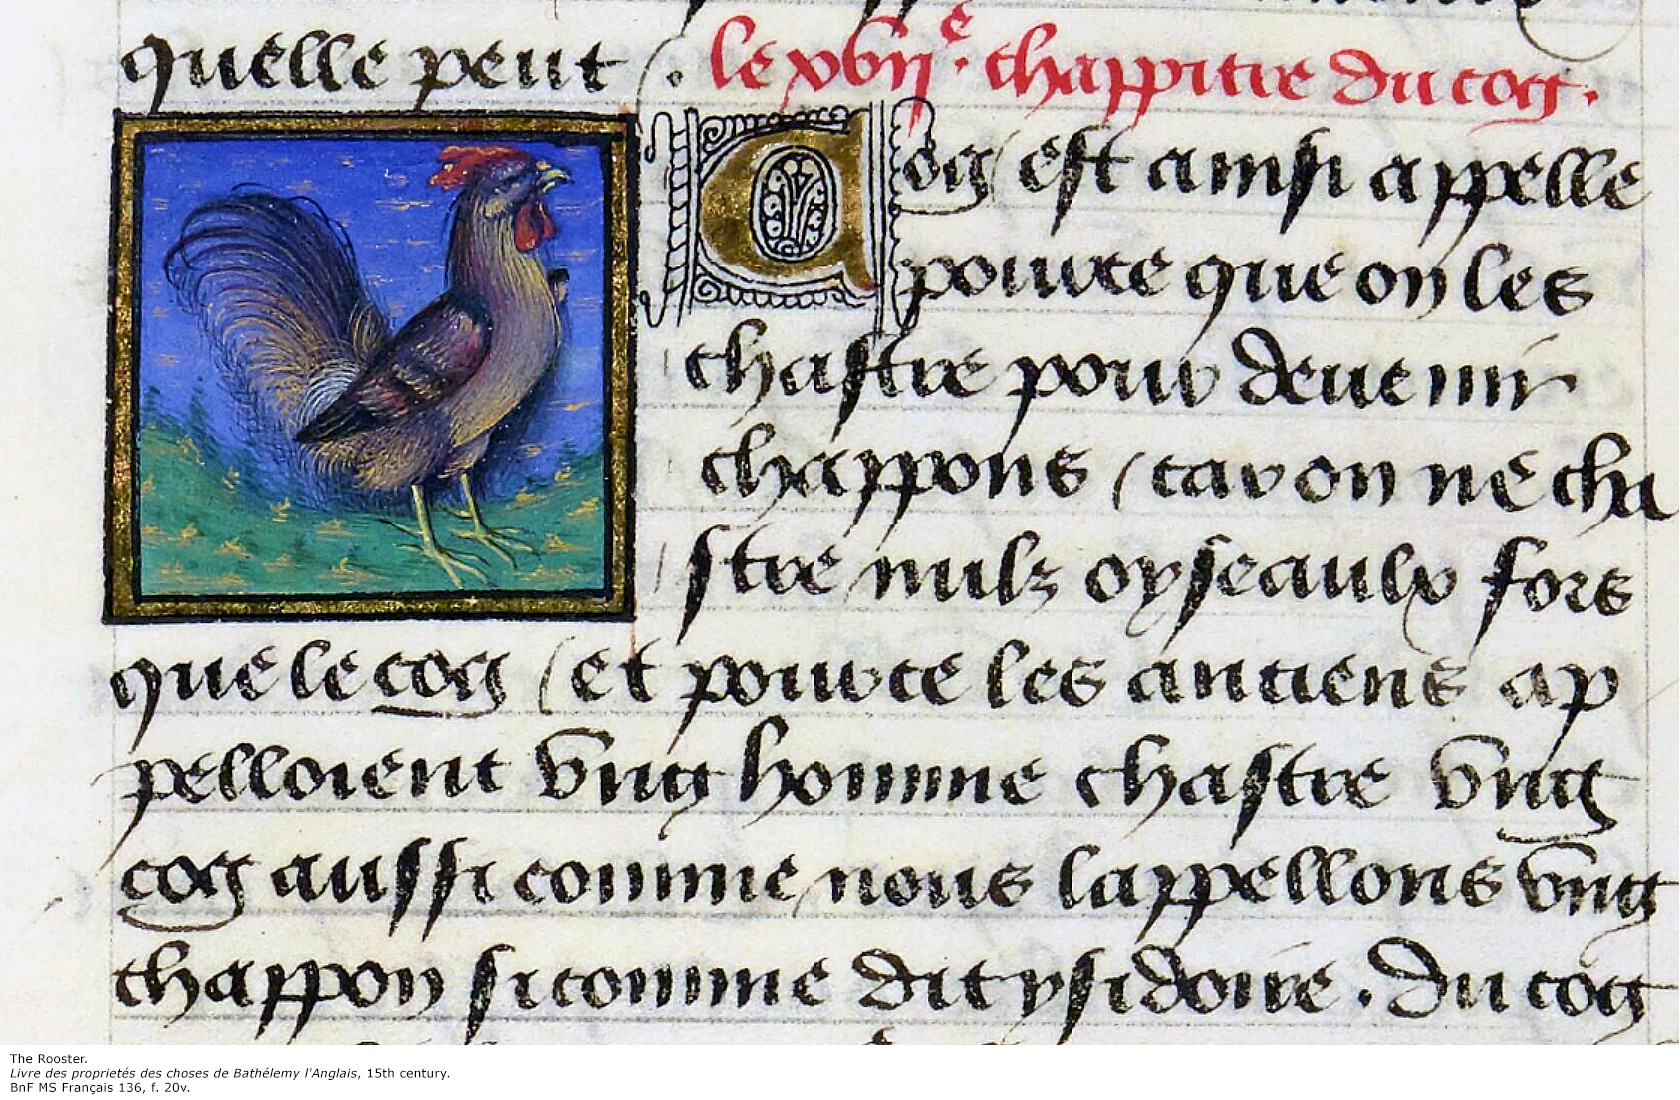 quelle peut . le xvii e. chappitre du coq.
Coq est ainsi appelle
pource que on les
chastre pour deuenir
chappons / car on ne cha
stre nulz oyseaulx fors
que le coq / et pource les anciens ap
pelloient vng homme chastre vng
coq aussi comme nous lappellons vng
chappon si comme dit ysidoire . Du coq
The Rooster.
Livre des proprietés des choses de Bathélemy l'Anglais, 15th century.
BnF MS Français 136, f. 20v.